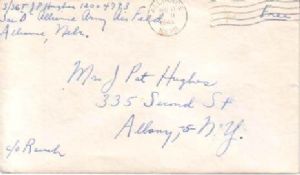 S/Sgt J P Hughes 12004783
Sec D Alliance Army Air Field
Alliance, Nebr.
Free
Mrs J Pat Hughes
335 Second St
Albany, 5 N.Y.
c/o